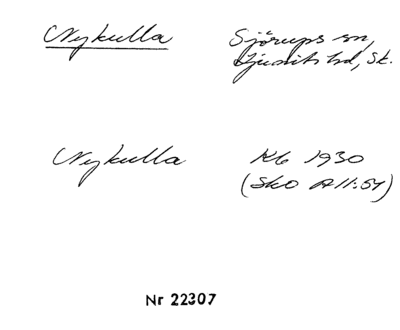 Nykulla Sjörups sn,
Ljunits hd, Sk.
Nykulla Kb 1930
(Sko A11:54)
Nr 22307